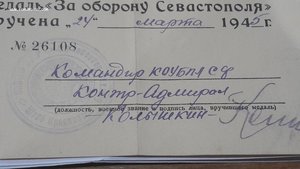 едаль „За оборону Севастополя"
ручена „24" марта 1945 г.
№ 26108
Командир КОУБПЛ СФ
Контр-Адмирал
(должность, военное звание и подпись лица, вручившего медаль)
Колышкин